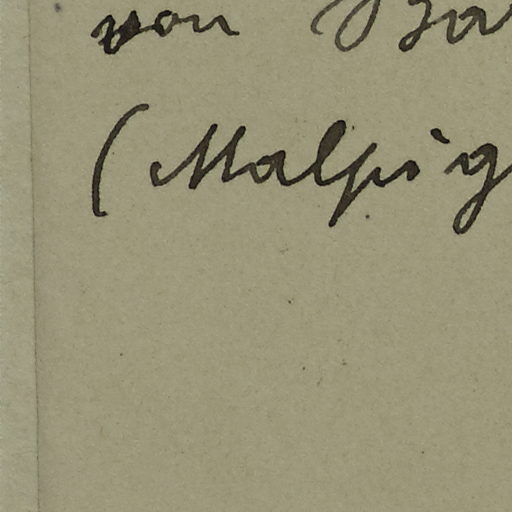 von Ba
(Malpig